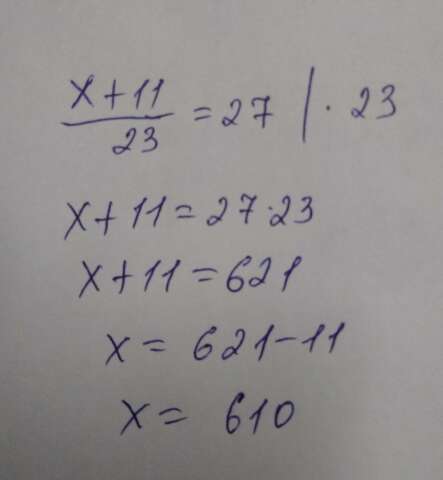 x+11/23 = 27 | · 23
x+11 = 27·23
x+11 = 621
x = 621-11
x = 610